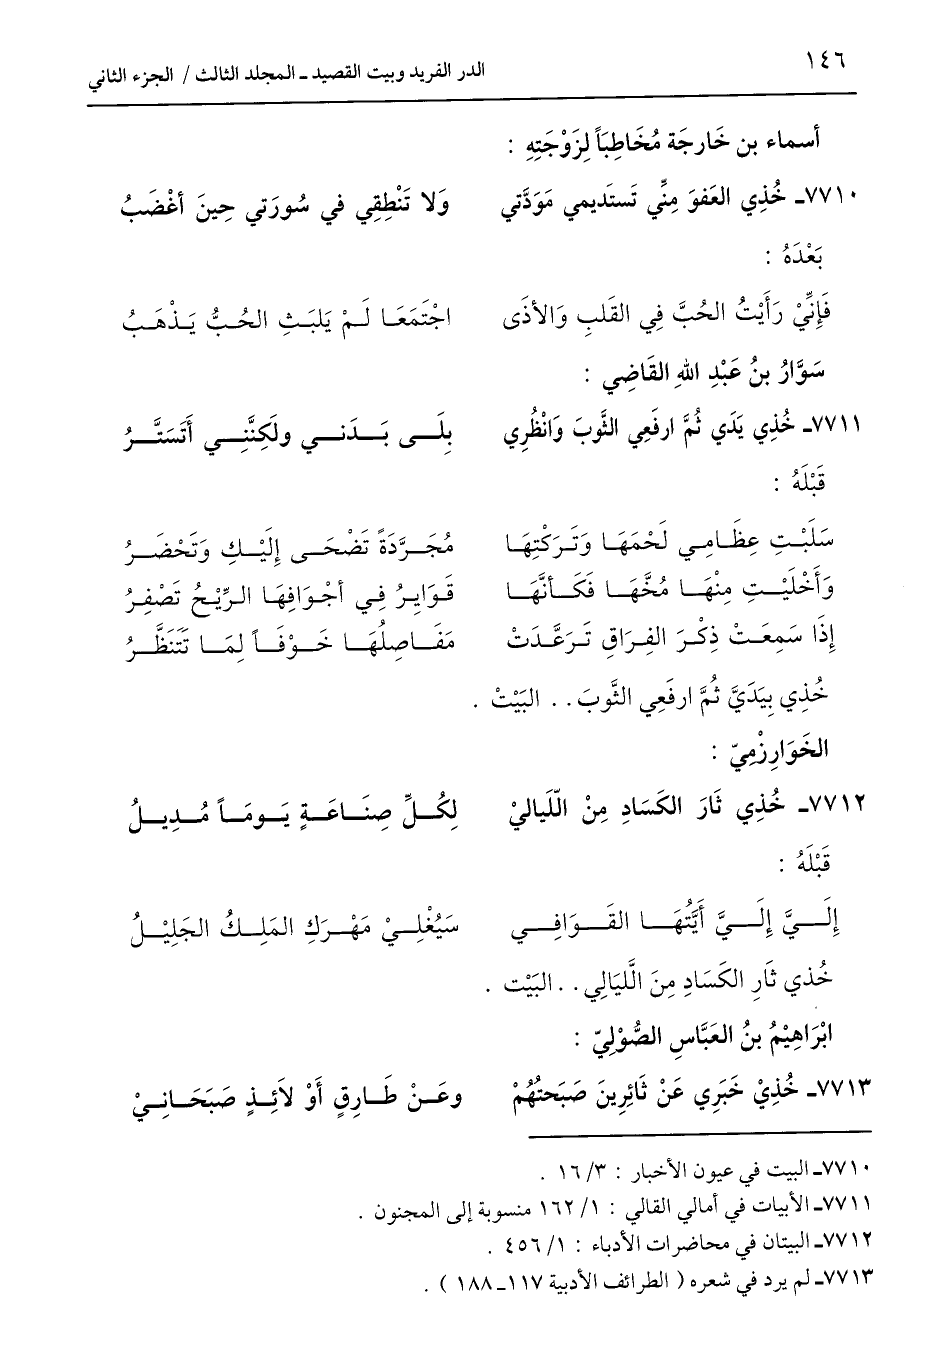 ١٤٦
الدر الفريد وبيت القصيد ـ المجلد الثالث / الجزء الثاني
أسماء بن خَارجَة مُخَاطِبَاً لِزَوْجَتِهِ :
٧٧١٠ـ خُذِي العَفوَ مِنِّي تَستَديمي مَوَدَّتي وَلا تَنْطِقِي في سُورَتي حِينَ أغْضَبُ
بَعْدَهُ :
فَإنِّيْ رَأَيْتُ الحُبَّ فِي القَلبِ وَالأذَى اجْتَمَعَا لَمْ يَلبَثِ الحُبُّ يَذْهَبُ
سَوَّارُ بنُ عَبْدِ اللهِ القَاضِي :
٧٧١١ـ خُذِي يَدَي ثُمَّ ارفَعِي الثَّوبَ وَانْظُرِي بِلَى بَدَني ولَكِنَّنِي أَتَسَتَّرُ
قَبْلَهُ :
سَلَبْتِ عِظَامِي لَحْمَهَا وَتَرَكتِهَا مُجَرَّدَةً تَضْحَى إِلَيْكِ وَتَحْضَرُ
وَأَخْلَيْتِ مِنْهَا مُخَّهَا فَكَأنَّهَا قَوَايرُ فِي أجْوَافِهَا الرِّيْحُ تَصْفِرُ
إِذَا سَمِعَتْ ذِكْرَ الفِرَاقِ تَرَعَّدَتْ مَفَاصِلُهَا خَوْفَاً لِمَا تَتَنَظَّرُ
خُذِي بِيَدَيَّ ثُمَّ ارفَعِي الثَّوبَ . . البَيْتْ .
الخَوَارِزْمِيّ :
٧٧١٢ـ خُذِي ثَارَ الكَسَادِ مِنْ اللّيَاليْ لِكُلِّ صِنَاعَةٍ يَومَاً مُدِيلُ
قَبْلَهُ :
إِلَيَّ إِلَيَّ أَيَّتُهَا القَوَافِي سَيُغْلِيْ مَهْرَكِ المَلِكُ الجَلِيْلُ
خُذي ثَارِ الكَسَادِ مِنَ الَّليَالِي . . البَيْت .
ابْرَاهِيْمُ بنُ العَبَّاسِ الصُّوْلِيّ :
٧٧١٣ـ خُذِيْ خَبَرِي عَنْ ثَائِرِينَ صَبَحتُهُمْ وعَنْ طَارِقٍ أَوْ لاَئِذٍ صَبَحَانِيْ
٧٧١٠ـ البيت في عيون الأخبار : ٣/ ١٦ .
٧٧١١ـ الأبيات في أمالي القالي : ١/ ١٦٢ منسوبة إلى المجنون .
٧٧١٢ـ البيتان في محاضرات الأدباء : ١/ ٤٥٦ .
٧٧١٣ـ لم يرد في شعره ( الطرائف الأدبية ١١٧ـ ١٨٨ ) .